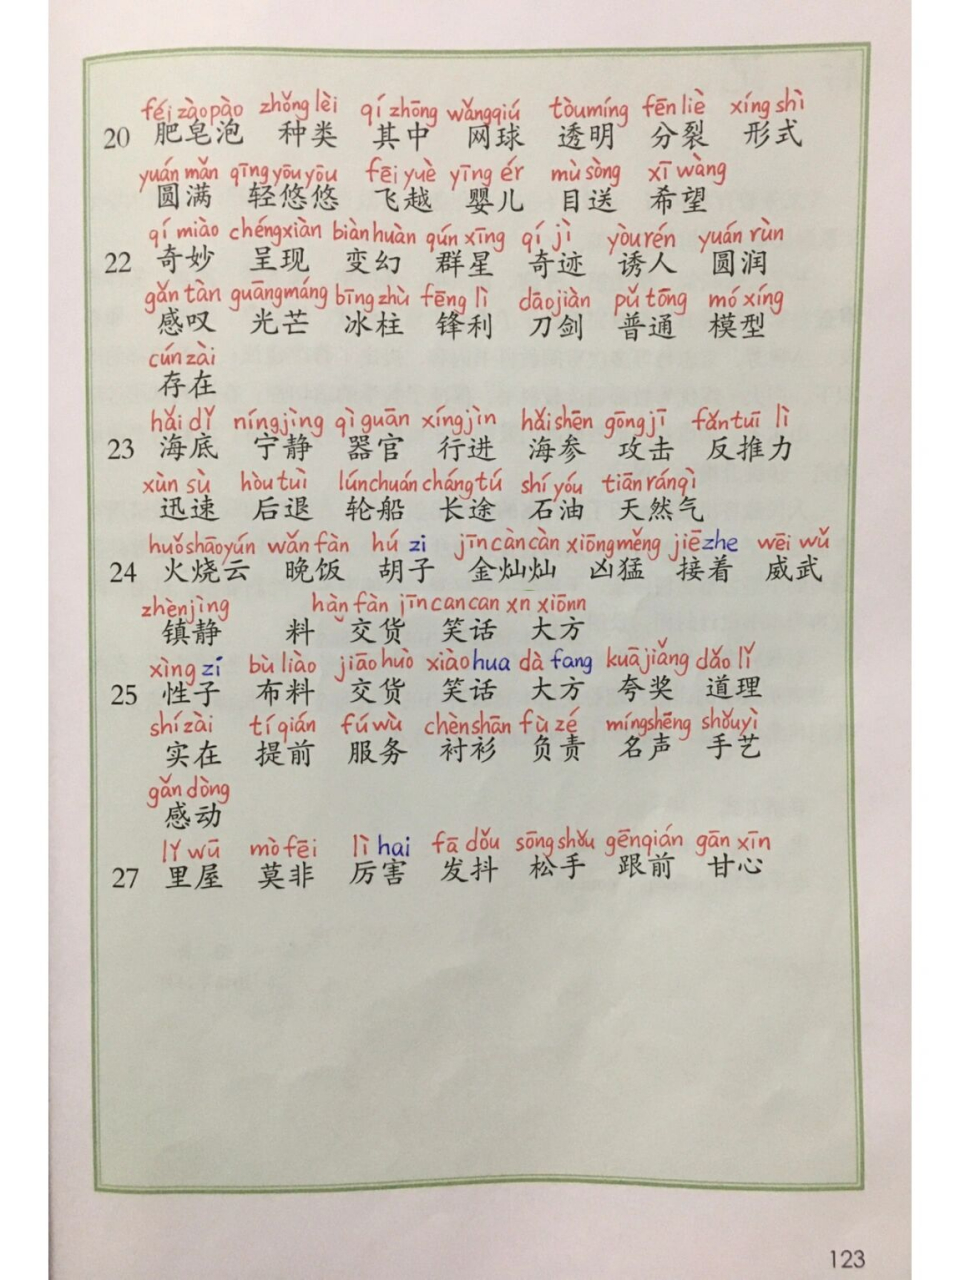 féi zào pào zhǒng lèi qí zhōng wǎng qiú tòu míng fēn liè xíng shì
20 肥皂泡 种类 其中 网球 透明 分裂 形式
yuán mǎn qīng yōu yōu fēi yuè yīng ér mù sòng xī wàng
圆满 轻悠悠 飞越 婴儿 目送 希望
qí miào chéng xiàn biàn huàn qún xīng qí jì yòu rén yuán rùn
22 奇妙 呈现 变幻 群星 奇迹 诱人 圆润
gǎn tàn guāng máng bīng zhù fēng lì dāo jiàn pǔ tōng mó xíng
感叹 光芒 冰柱 锋利 刀剑 普通 模型
cún zài
存在
hǎi dǐ níng jìng qì guān xíng jìn hǎi shēn gōng jī fǎn tuī lì
23 海底 宁静 器官 行进 海参 攻击 反推力
xùn sù hòu tuì lún chuán cháng tú shí yóu tiān rán qì
迅速 后退 轮船 长途 石油 天然气
huǒ shāo yún wǎn fàn hú zi jīn càn càn xiōng měng jiē zhe wēi wǔ
24 火烧云 晚饭 胡子 金灿灿 凶猛 接着 威武
zhèn jìng hàn fàn jīn can can xn xiōnn
镇静 料 交货 笑话 大方
xìng zi bù liào jiāo huò xiào hua dà fang kuā jiǎng dǎo lǐ
25 性子 布料 交货 笑话 大方 夸奖 道理
shí zài tí qián fú wù chèn shān fù zé míng shēng shǒu yì
实在 提前 服务 衬衫 负责 名声 手艺
gǎn dòng
感动
lǐ wū mò fēi lì hai fā dǒu sōng shǒu gēn qián gān xīn
27 里屋 莫非 厉害 发抖 松手 跟前 甘心
123